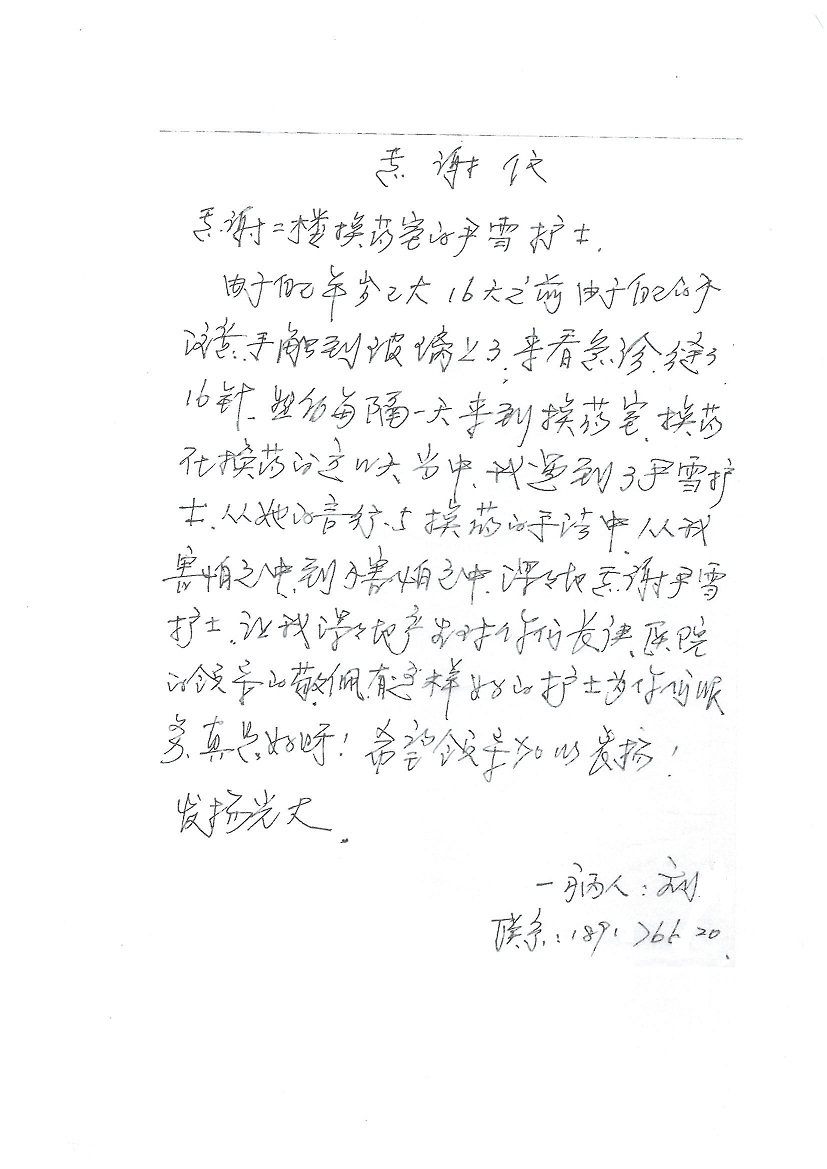 感谢信
感谢二楼换药室的尹雪护士.
由于自己年岁已大16天之前由于自己的不
注意.手触到玻璃上了.来看急诊.缝了
16针.然后每隔一天来到换药室.换药
在换药的这些天当中.我遇到了尹雪护
士.从她的言行.与换药的手法中.从我
害怕之中.到不害怕之中.深深地感谢尹雪
护士.让我深深地产生对你们长征医院
的领导的敬佩.有这样好的护士为你们服
务.真是好呀!希望领导加以表扬!
发扬光大.
一病人:刘
联系:1891 766 20.